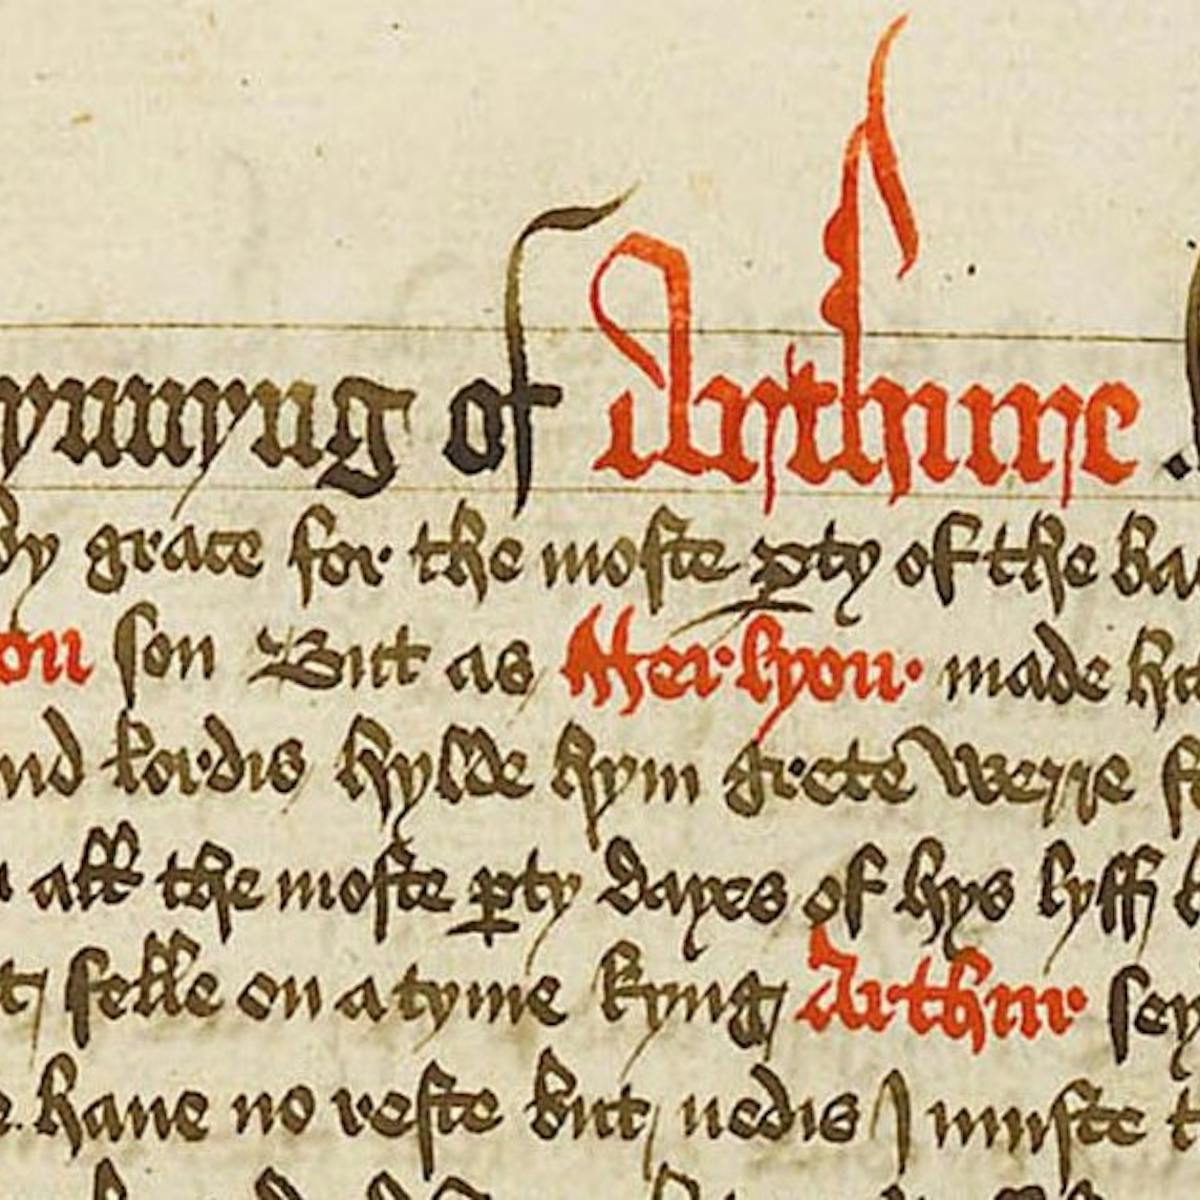 ynnyng of Arthure .
by grace for the moste pty of the ba
on son But as Merlyon made hi
nd lordis hylde hym grete werre f
all the moste pty dayes of hys lyff b
t felle on a tyme kyng Arthur sey
haue no reste but nedis I muste t